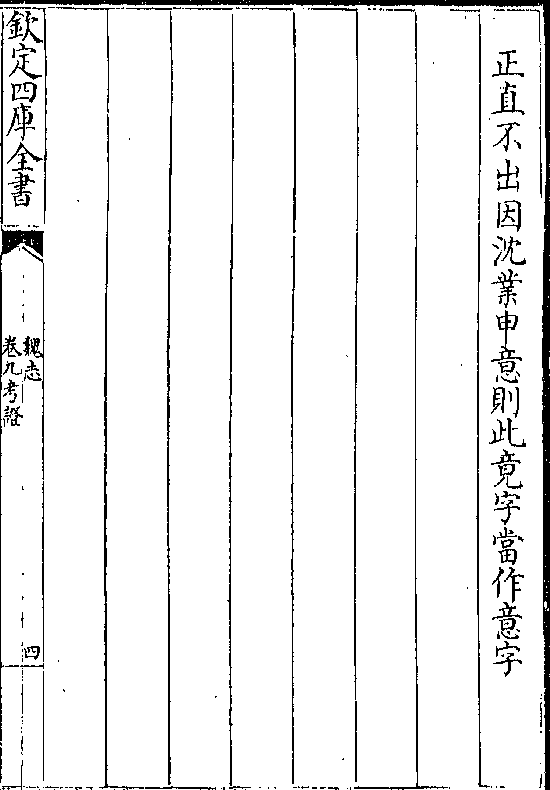 正直不出因沈業申意則此竟字當作意字
欽定四庫全書
魏志
卷九考證
四